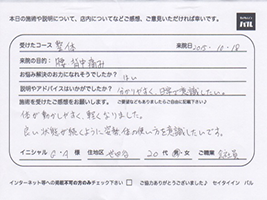 本日の施術や説明について、店内についてなどご感想、ご意見いただければ幸いです。
バル
受けたコース 整体 来院日 2015.10.18
来院の目的: 腰 背中 痛み
お悩み解決のお力になれそうでしたか? はい
説明やアドバイスはいかがでしたか? 分かりやすく、日常で意識したい。
施術を受けたご感想をお願いします。 ご要望などもありましたらご自由に記載下さい♪
体が動かしやすく、軽くなりました。
良い状態が続くように姿勢、体の使い方を意識したいです。
イニシャル O・A 様 お住地区 世田谷 20代 男・女 ご職業 会社員
インターネット等への掲載不可の方のみチェック下さい ご協力ありがとうございました♪ セイタイイン バル